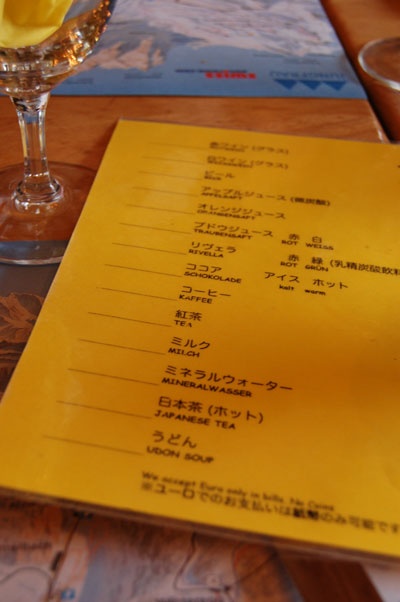 JUNGFRAU
赤ワイン (グラス)
白ワイン (グラス)
ビール
BIER
アップルジュース (微炭酸)
APFELSAFT
オレンジジュース
ORANGENSAFT
ブドウジュース 赤 白
TRAUBENSAFT ROT WEISS
リヴェラ 赤 緑 (乳精炭酸飲料
RIVELLA ROT GRÜN
ココア アイス ホット
SCHOKOLADE kalt warm
コーヒー
KAFFEE
紅茶
TEA
ミルク
MILCH
ミネラルウォーター
MINERALWASSER
日本茶 (ホット)
JAPANESE TEA
うどん
UDON SOUP
We accept Euro only in bills. No Coins
※ユーロでのお支払いは紙幣のみ可能です